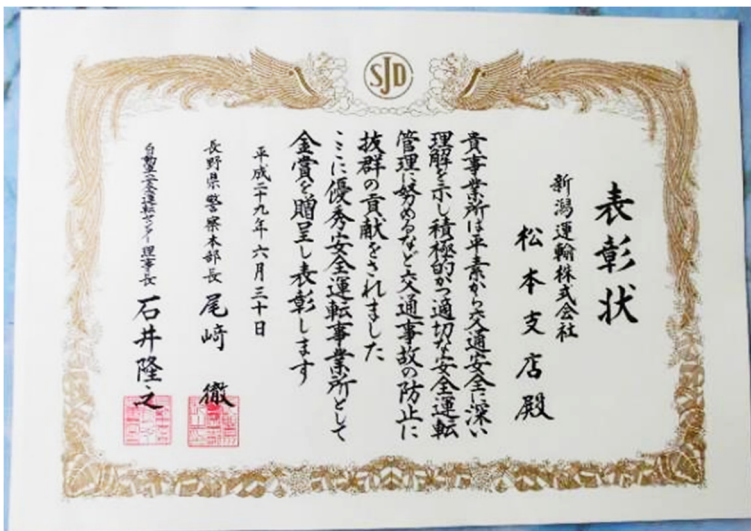 SJD
表彰状
新潟運輸株式会社
松本支店殿
貴事業所は平素から交通安全に深い
理解を示し積極的かつ適切な安全運転
管理に努めるなど交通事故の防止に
抜群の貢献をされました
ここに優秀安全運転事業所として
金賞を贈呈し表彰します
平成二十九年六月三十日
長野県警察本部長 尾﨑 徹
自動車安全運転センター理事長 石井隆之